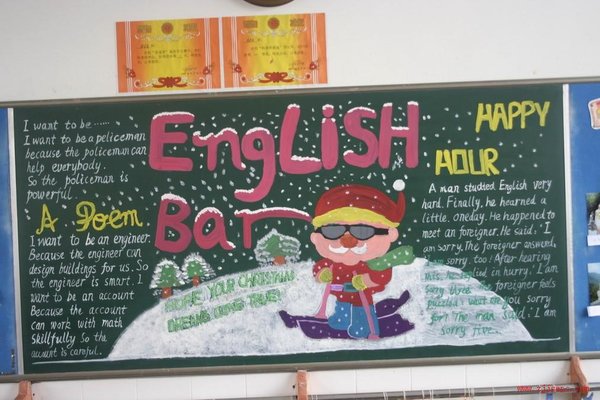 ENGLiSH
Bar
I want to be......
I want to be a peliceman
because the policeman can
help everybody.
So the policeman is
powerful.
A Poem
I want to be an engineer.
Because the engineer can
design buildings for us. So
the engineer is smart. I
want to be an account
Because the account
can work with math
Skillfully So the
account is careful.
HOPE YOUR CHRISTMAS
DREAMS COME TRUE!
HAPPY
HOUR
A man studied English very
hard. Finally, he learned a
little. Oneday. He happened to
meet an foreigner. He said: I
am sorry. The foreigner answerd,
I am sorry. too! After hearing
this. He replied in hurry: I am
sorry three. The foreigner feels
puzzled: what are you sorry
for? The man said: I am
sorry five...